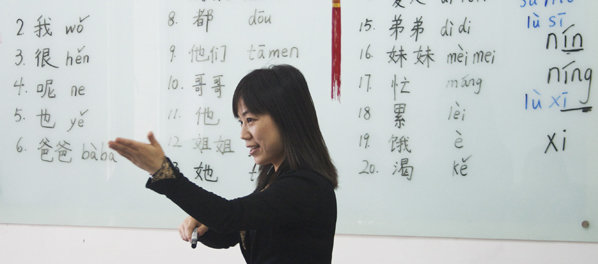 2. 我 wǒ
3. 很 hěn
4. 呢 ne
5. 也 yě
6. 爸爸 bàba
8. 都 dōu
9. 他们 tāmen
10. 哥哥
11. 他
12 姐姐
她
15. 弟弟 dìdi
16. 妹妹 mèimei
17. 忙 máng
18 累 lèi
19. 饿 è
20. 渴 kě
lù sī
nín
níng
lù xī
xi